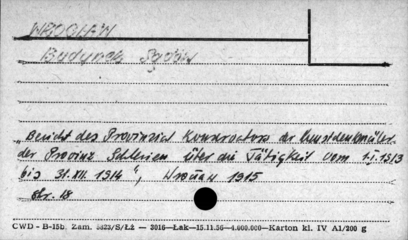 WROCŁAW
Budynek Sądów
„Bericht des Provinzial Konservators der Kunstdenkmäler
der Provinz Schlesien über die Tätigkeit vom 1.I.1913
bis 31.XII.1914", Breslau 1915
str. 18
CWD - B-15b. Zam. 3823/S/Łż — 3016—Łak—15.11.56—4.000.000—Karton kl. IV A1/200 g